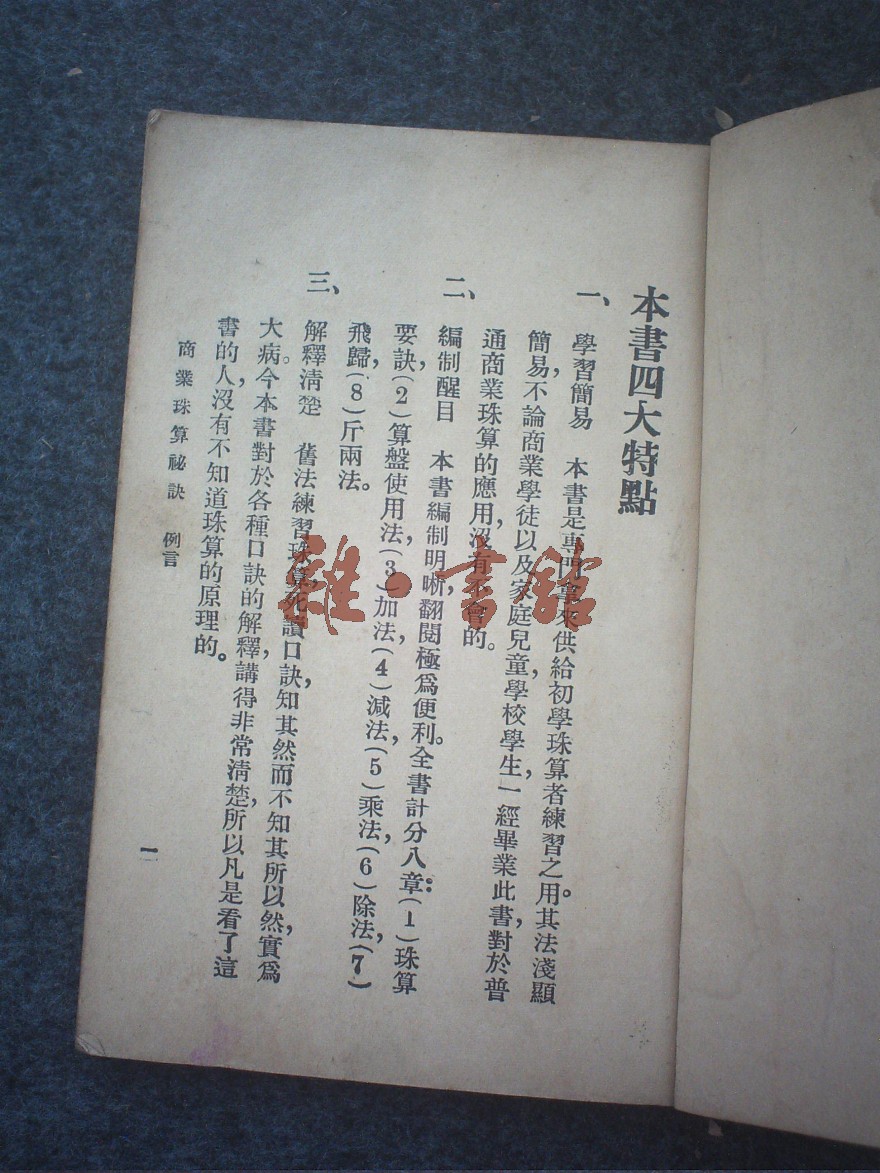 本書四大特點
一、學習簡易　本書是專門拿來供給初學珠算者練習之用。其法淺顯
簡易，不論商業學徒以及家庭兒童，學校學生，一經畢業此書，對於普
通商業珠算的應用，沒有不會的。
二、編制醒目　本書編制明晰，翻閱極爲便利。全書計分八章：(1)珠算
要訣，(2)算盤使用法，(3)加法，(4)減法，(5)乘法，(6)除法，(7)
飛歸，(8)斤兩法。
三、解釋清楚　舊法練習珠算，死讀口訣，知其然而不知其所以然，實爲
大病。今本書對於各種口訣的解釋，講得非常清楚，所以凡是看了這
書的人，沒有不知道珠算的原理的。
商業珠算祕訣　例言
一
雜·書館